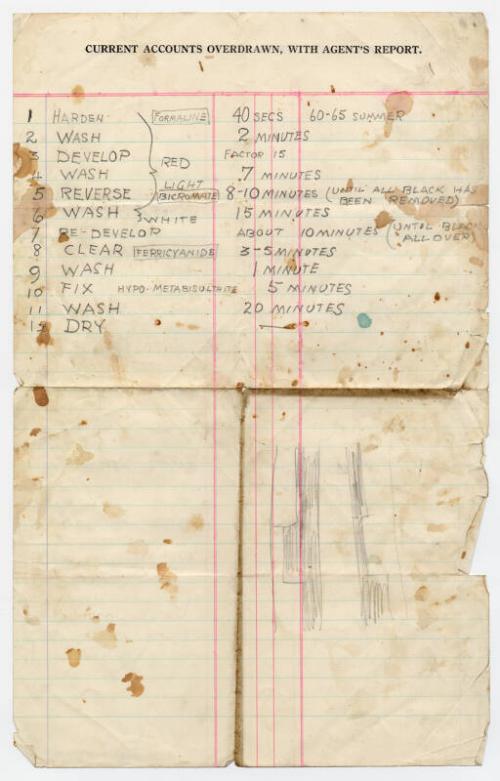 CURRENT ACCOUNTS OVERDRAWN, WITH AGENT'S REPORT.
1 HARDEN FORMALINE 40 SECS 60-65 SUMMER
2 WASH 2 MINUTES
3 DEVELOP RED FACTOR 15
4 WASH LIGHT 7 MINUTES
5 REVERSE BICROMATE 8-10 MINUTES (UNTIL ALL BLACK HAS BEEN REMOVED)
6 WASH WHITE 15 MINUTES
7 RE-DEVELOP ABOUT 10 MINUTES (UNTIL BLACK ALL OVER)
8 CLEAR FERRICYANIDE 3-5 MINUTES
9 WASH 1 MINUTE
10 FIX HYPO-METABISULTHITE 5 MINUTES
11 WASH 20 MINUTES
12 DRY